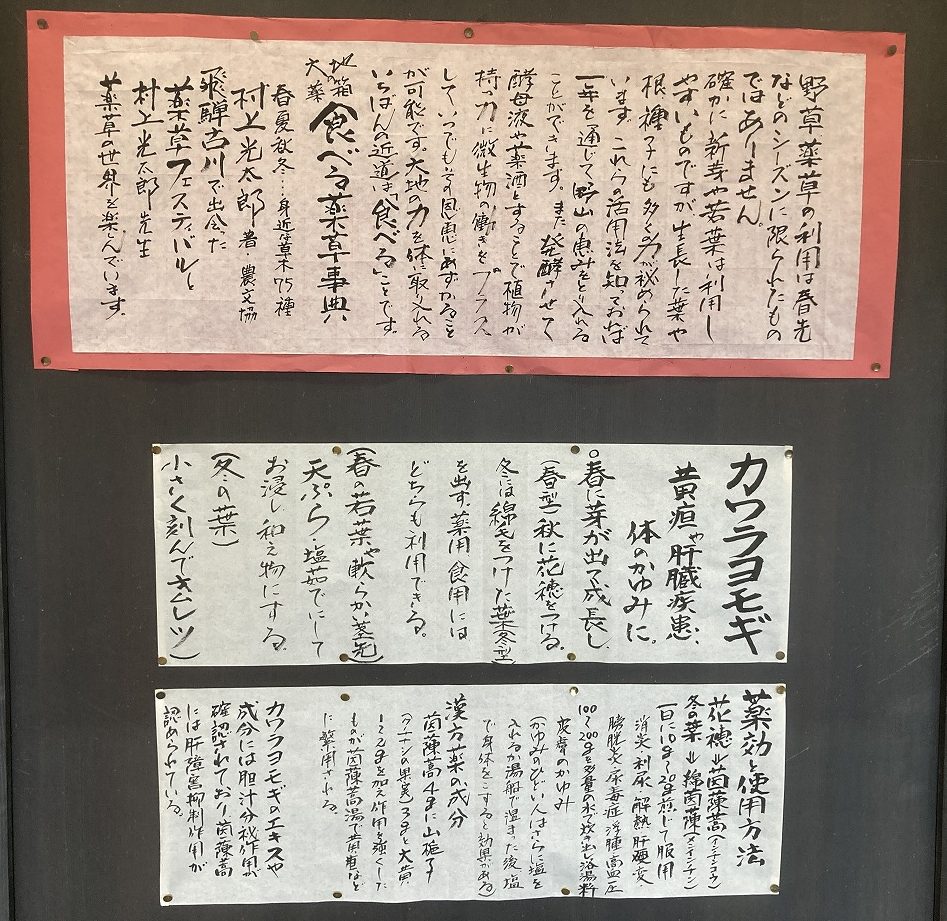 野草薬草の利用は春先
などのシーズンに限られたもの
ではありません。
確かに新芽や若葉は利用し
やすいものですが生長した葉や
根、種子にも多く力が秘められて
います。これらの活用法を知っておけば
一年を通じて野山の恵みをとり入れる
ことができます。また発酵させて
酵母液や薬酒とすることで植物が
持つ力に微生物の働きをプラス
して、いつでもその恩恵にあずかること
が可能です。大地の力を体に取り入れる
いちばんの近道は「食べる」ことです。
大地の薬箱 食べる薬草事典
春夏秋冬…身近な草木75種
村上光太郎 著・農文協
飛騨古川で出会った
薬草フェスティバルと
村上光太郎先生
薬草の世界を楽んでいます。
カワラヨモギ
黄疸や肝臓疾患、
体のかゆみに。
○春に芽が出て成長し
(春型)秋に花穂をつける。
冬には綿毛をつけた葉(冬型)
を出す。薬用 食用には
どちらも利用できる。
(春の若葉や軟らか茎先)
天ぷら・塩茹でにして
お浸し 和え物にする。
(冬の葉)
小さく刻んでオムレツ
薬効と使用方法
花穂⇒茵蔯蒿(インチンコウ)
冬の葉⇒綿茵蔯(メンインチン)
一日に10g〜20g煎じて服用
消炎 利尿 解熱 肝硬変
膀胱炎 尿毒症 浮腫 高血圧
100〜200gを多量の水で炊き出し浴湯料
皮膚のかゆみ
(かゆみのひどい人はさらに塩を
入れるか湯船で温まった後塩
で身体をこすると効果がある)
漢方薬の成分
茵蔯蒿4gに山梔子
(クチナシの果実)3gと大黄
1〜2gを加え作用を強くした
ものが茵蔯蒿湯で黄疸など
に繁用される。
カワラヨモギのエキスや
成分には胆汁分秘作用が
確認されており茵蔯蒿
には肝障害抑制作用が
認められている。